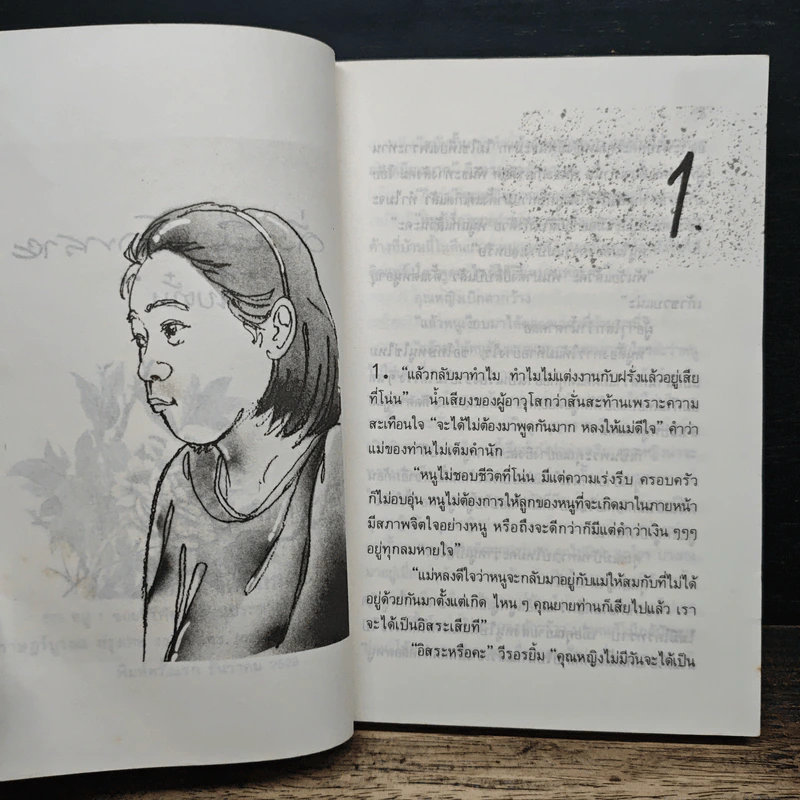 1.
1. “แล้วกลับมาทำไม ทำไมไม่แต่งงานกับฝรั่งแล้วอยู่เสีย
ที่โน่น” น้ำเสียงของผู้อาวุโสกว่าสั่นสะท้านเพราะความ
สะเทือนใจ “จะได้ไม่ต้องมาพูดกันมาก หลงให้แม่ดีใจ” คำว่า
แม่ของท่านไม่เต็มคำนัก
“หนูไม่ชอบชีวิตที่โน่น มีแต่ความเร่งรีบ ครอบครัว
ก็ไม่อบอุ่น หนูไม่ต้องการให้ลูกของหนูที่จะเกิดมาในภายหน้า
มีสภาพจิตใจอย่างหนู หรือถึงจะดีกว่าก็มีแต่คำว่าเงิน ๆๆๆ
อยู่ทุกลมหายใจ”
“แม่หลงดีใจว่าหนูจะกลับมาอยู่กับแม่ให้สมกับที่ไม่ได้
อยู่ด้วยกันมาตั้งแต่เกิด ไหน ๆ คุณยายท่านก็เสียไปแล้ว เรา
จะได้เป็นอิสระเสียที”
“อิสระหรือคะ” วีรอรยิ้ม “คุณหญิงไม่มีวันจะได้เป็น